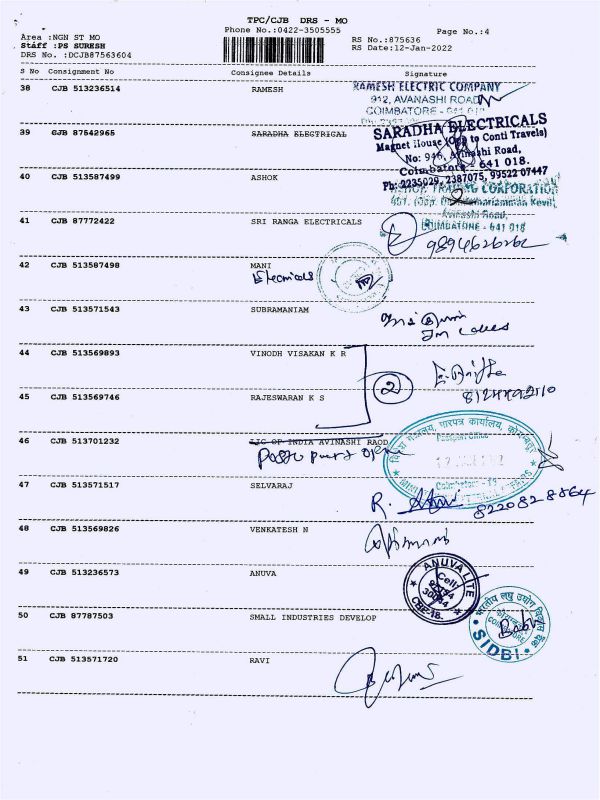 TPC/CJB DRS - MO
Phone No.:0422-3505555
Page No.:4
Area :NGN ST MO
RS No.:875636
Staff :PS SURESH
RS Date:12-Jan-2022
DRS No. :DCJB87563604
S No Consignment No Consignee Details Signature
38 CJB 513236514 RAMESH
RAMESH ELECTRIC COMPANY
912, AVANASHI ROAD
COIMBATORE - 641 018
39 CJB 87542965 SARADHA ELECTRICAL
SARADHA ELECTRICALS
Magnet House (Opp to Conti Travels)
No: 946, Avinashi Road,
Coimbatore - 641 018.
Ph: 2235029, 2387075, 99522 07447
40 CJB 513587499 ASHOK
ASHOK TRADING CORPORATION
Avinashi Road,
COIMBATORE - 641 018
41 CJB 87772422 SRI RANGA ELECTRICALS
9894626262
42 CJB 513587498 MANI
Electricals
43 CJB 513571543 SUBRAMANIAM
44 CJB 513569893 VINODH VISAKAN K R
2
45 CJB 513569746 RAJESWARAN K S
46 CJB 513701232 LIC OF INDIA AVINASHI RAOD
पारपत्र कार्यालय,
Passport Office
Coimbatore - 18
47 CJB 513571517 SELVARAJ
R.
8220828864
48 CJB 513569826 VENKATESH N
49 CJB 513236573 ANUVA
ANUVA LITE
Cell:
CBE-18.
50 CJB 87787503 SMALL INDUSTRIES DEVELOP
भारतीय लघु उद्योग विकास बैंक
COIMBATORE
Babu
SIDBI
51 CJB 513571720 RAVI